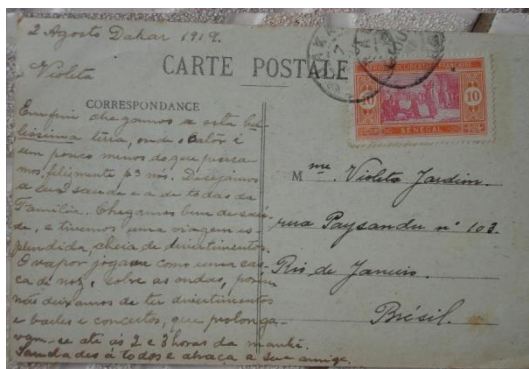 2 Agosto Dakar 1919.
Violeta
CARTE POSTALE
CORRESPONDANCE
Emfim chegamos a esta bel-
lissima terra, onde o calôr é
um pouco menos do que pensa-
mos, felizmente p.ª nós. Desejamos
a sua saude e a de todos da
Familia. Chegamos bem de saú-
de, e tivemos uma viagem es-
plendida, cheia de divertimentos.
O vapor jogava como uma cas-
ca de noz, sobre as ondas, porém
não deixamos de ter divertimentos
e bailes e concertos, que prolonga-
vam-se até ás 2 e 3 horas da manhã.
Saudades à todos e abraça a sua amiga.
10 10
SENEGAL
Mme. Violeta Jardim.
rua Paysandu nº 103.
Rio de Janeiro.
Brésil.